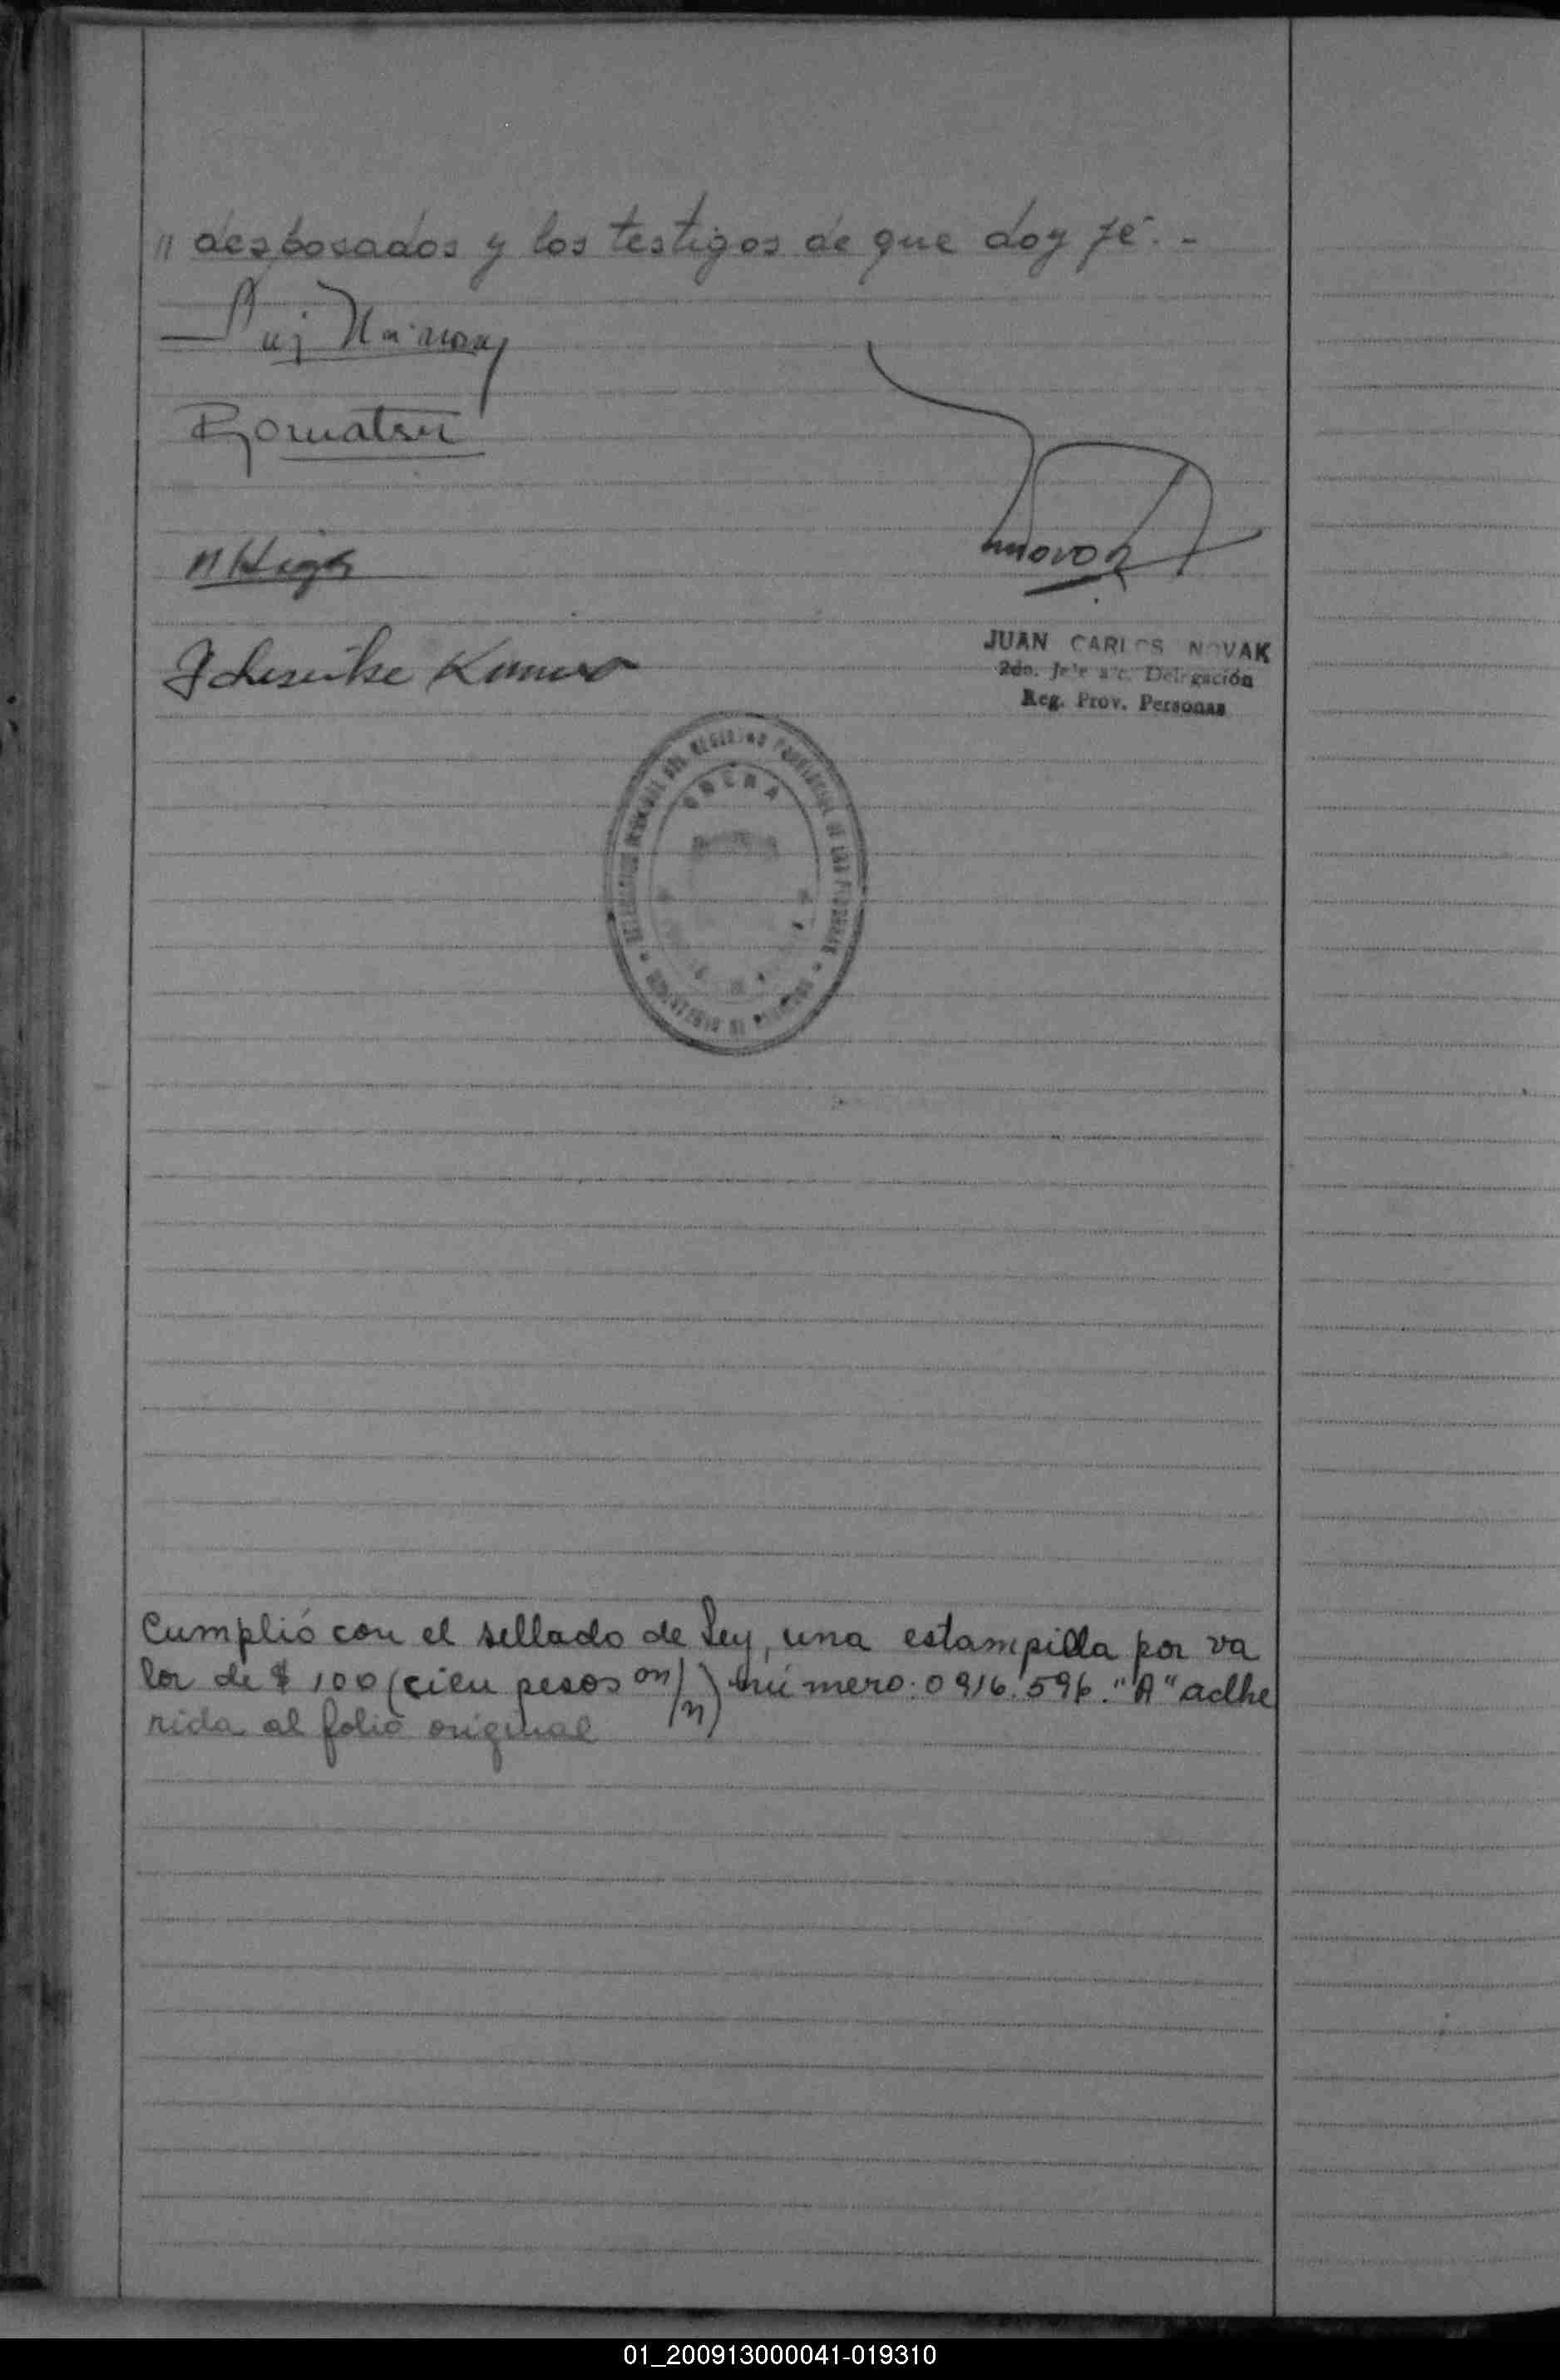 " desposados y los testigos de que doy fé. -
Komatsu
JUAN CARLOS NOVAK
2do. Jefe a/c. Delegación
Reg. Prov. Personas
REGISTRO PROVINCIAL DE LAS PERSONAS
OBERA
Cumplió con el sellado de Ley, una estampilla por va
lor de $ 100 (cien pesos m/n) número: 0916.596. "A" adhe
rida al folio original
01_200913000041-019310